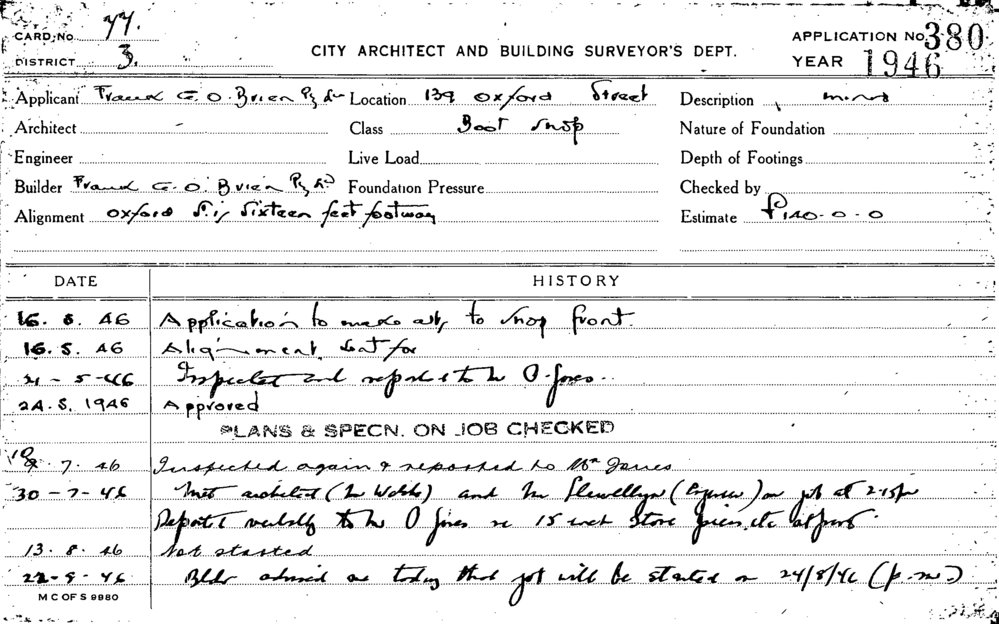 CARD No 77.
DISTRICT 3.
CITY ARCHITECT AND BUILDING SURVEYOR'S DEPT.
APPLICATION No 380
YEAR 1946
Applicant Frank G. O. Brien Pty Location 139 Oxford Street Description minor
Architect - Class Boot Shop Nature of Foundation
Engineer Live Load Depth of Footings
Builder Frank G. O. Brien Pty Ld Foundation Pressure Checked by
Alignment Oxford St. is sixteen feet footway Estimate £140-0-0
DATE HISTORY
16. 5. 46 Application to make alts to shop front.
16. 5. 46 Alignment sent for
21-5-46 Inspected and reported to Mr O. Jones.
24. 5. 1946 Approved
PLANS & SPECN. ON JOB CHECKED
7. 46 Inspected again & reported to Mr Jones
30-7-46 Met architect (Mr ) and Mr Llewellyn (Engineer) on job at 2-15pm
Reported verbally to Mr O Jones re 15 inch Store piers etc
13. 8. 46 Not started
46 Bldr advised me today that job will be started on 24/8/46 (p.m.)
M C OF S 9980